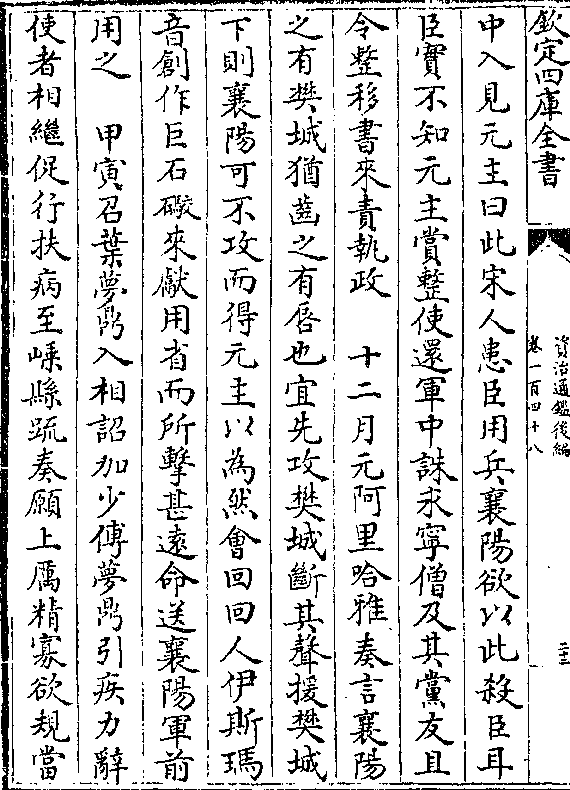 欽定四庫全書
資治通鑑後編
卷一百四十八
二十三
中入見元主曰此宋人患臣用兵襄陽欲以此殺臣耳
臣實不知元主賞整使還軍中誅永寧僧及其黨友且
令整移書來責執政　十二月元阿里哈雅奏言襄陽
之有樊城猶齒之有唇也宜先攻樊城斷其聲援樊城
下則襄陽可不攻而得元主以為然會回回人伊斯瑪
音創作巨石礮來獻用省而所擊甚遠命送襄陽軍前
用之　甲寅召葉夢鼎入相詔加少傅夢鼎引疾力辭
使者相繼促行扶病至嵊縣疏奏願上厲精寡欲規當